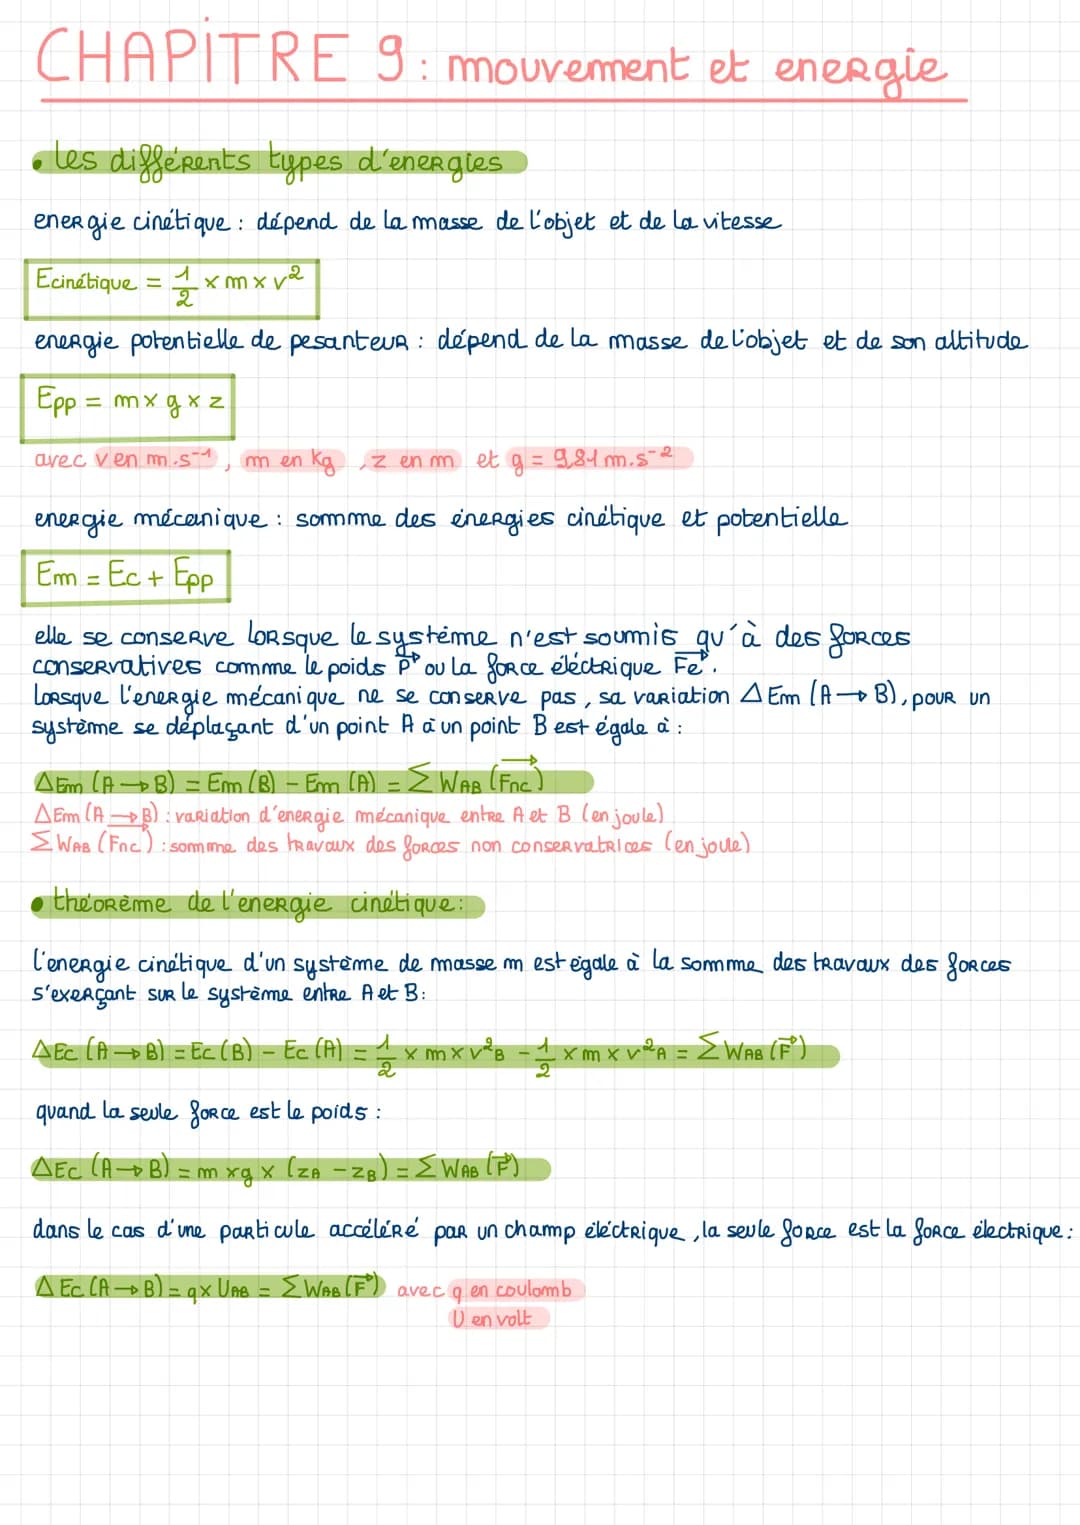 CHAPITRE 9 : mouvement et energie
• les différents types d'energies
energie cinétique : dépend de la masse de l'objet et de la vitesse
Ecinétique = 1/2 × m × v²
energie potentielle de pesanteur : dépend de la masse de l'objet et de son altitude
Epp = m × g × z
avec v en m.s⁻¹, m en kg, z en m et g = 9,81 m.s⁻²
energie mécanique : somme des énergies cinétique et potentielle
Em = Ec + Epp
elle se conserve lorsque le système n'est soumis qu'à des forces
conservatives comme le poids P⃗ ou la force éléctrique Fe⃗.
Lorsque l'energie mécanique ne se conserve pas, sa variation ΔEm (A→B), pour un
système se déplaçant d'un point A à un point B est égale à :
ΔEm (A→B) = Em (B) – Em (A) = Σ WAB (Fnc⃗)
ΔEm (A→B) : variation d'energie mécanique entre A et B (en joule)
Σ WAB (Fnc⃗) : somme des travaux des forces non conservatrices (en joule)
• théorème de l'energie cinétique :
l'energie cinétique d'un système de masse m est égale à la somme des travaux des forces
s'exerçant sur le système entre A et B :
ΔEc (A→B) = Ec (B) – Ec (A) = 1/2 × m × v²B – 1/2 × m × v²A = Σ WAB (F⃗)
quand la seule force est le poids :
ΔEc (A→B) = m × g × (zA – zB) = Σ WAB (F⃗)
dans le cas d'une particule accéléré par un champ éléctrique, la seule force est la force électrique :
ΔEc (A→B) = q × UAB = Σ WAB (F⃗) avec q en coulomb
U en volt